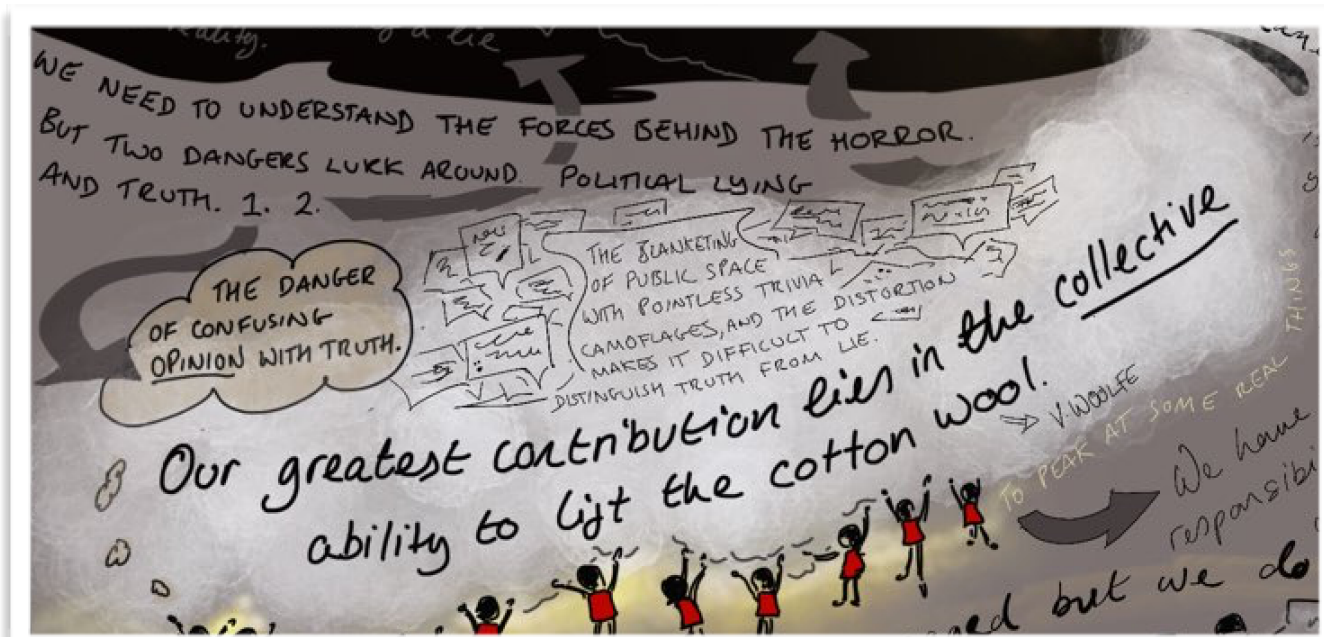 eality.
a lie
WE NEED TO UNDERSTAND THE FORCES BEHIND THE HORROR.
BUT TWO DANGERS LURK AROUND. POLITICAL LYING
AND TRUTH. 1. 2.
THE DANGER
OF CONFUSING
OPINION WITH TRUTH.
THE BLANKETING
OF PUBLIC SPACE
WITH POINTLESS TRIVIA
CAMOFLAGES, AND THE DISTORTION
MAKES IT DIFFICULT TO
DISTINGUISH TRUTH FROM LIE.
Our greatest contribution lies in the collective
ability to lift the cotton wool.
V. WOOLFE
TO PEAK AT SOME REAL THINGS
We have
responsibi
ed but we do